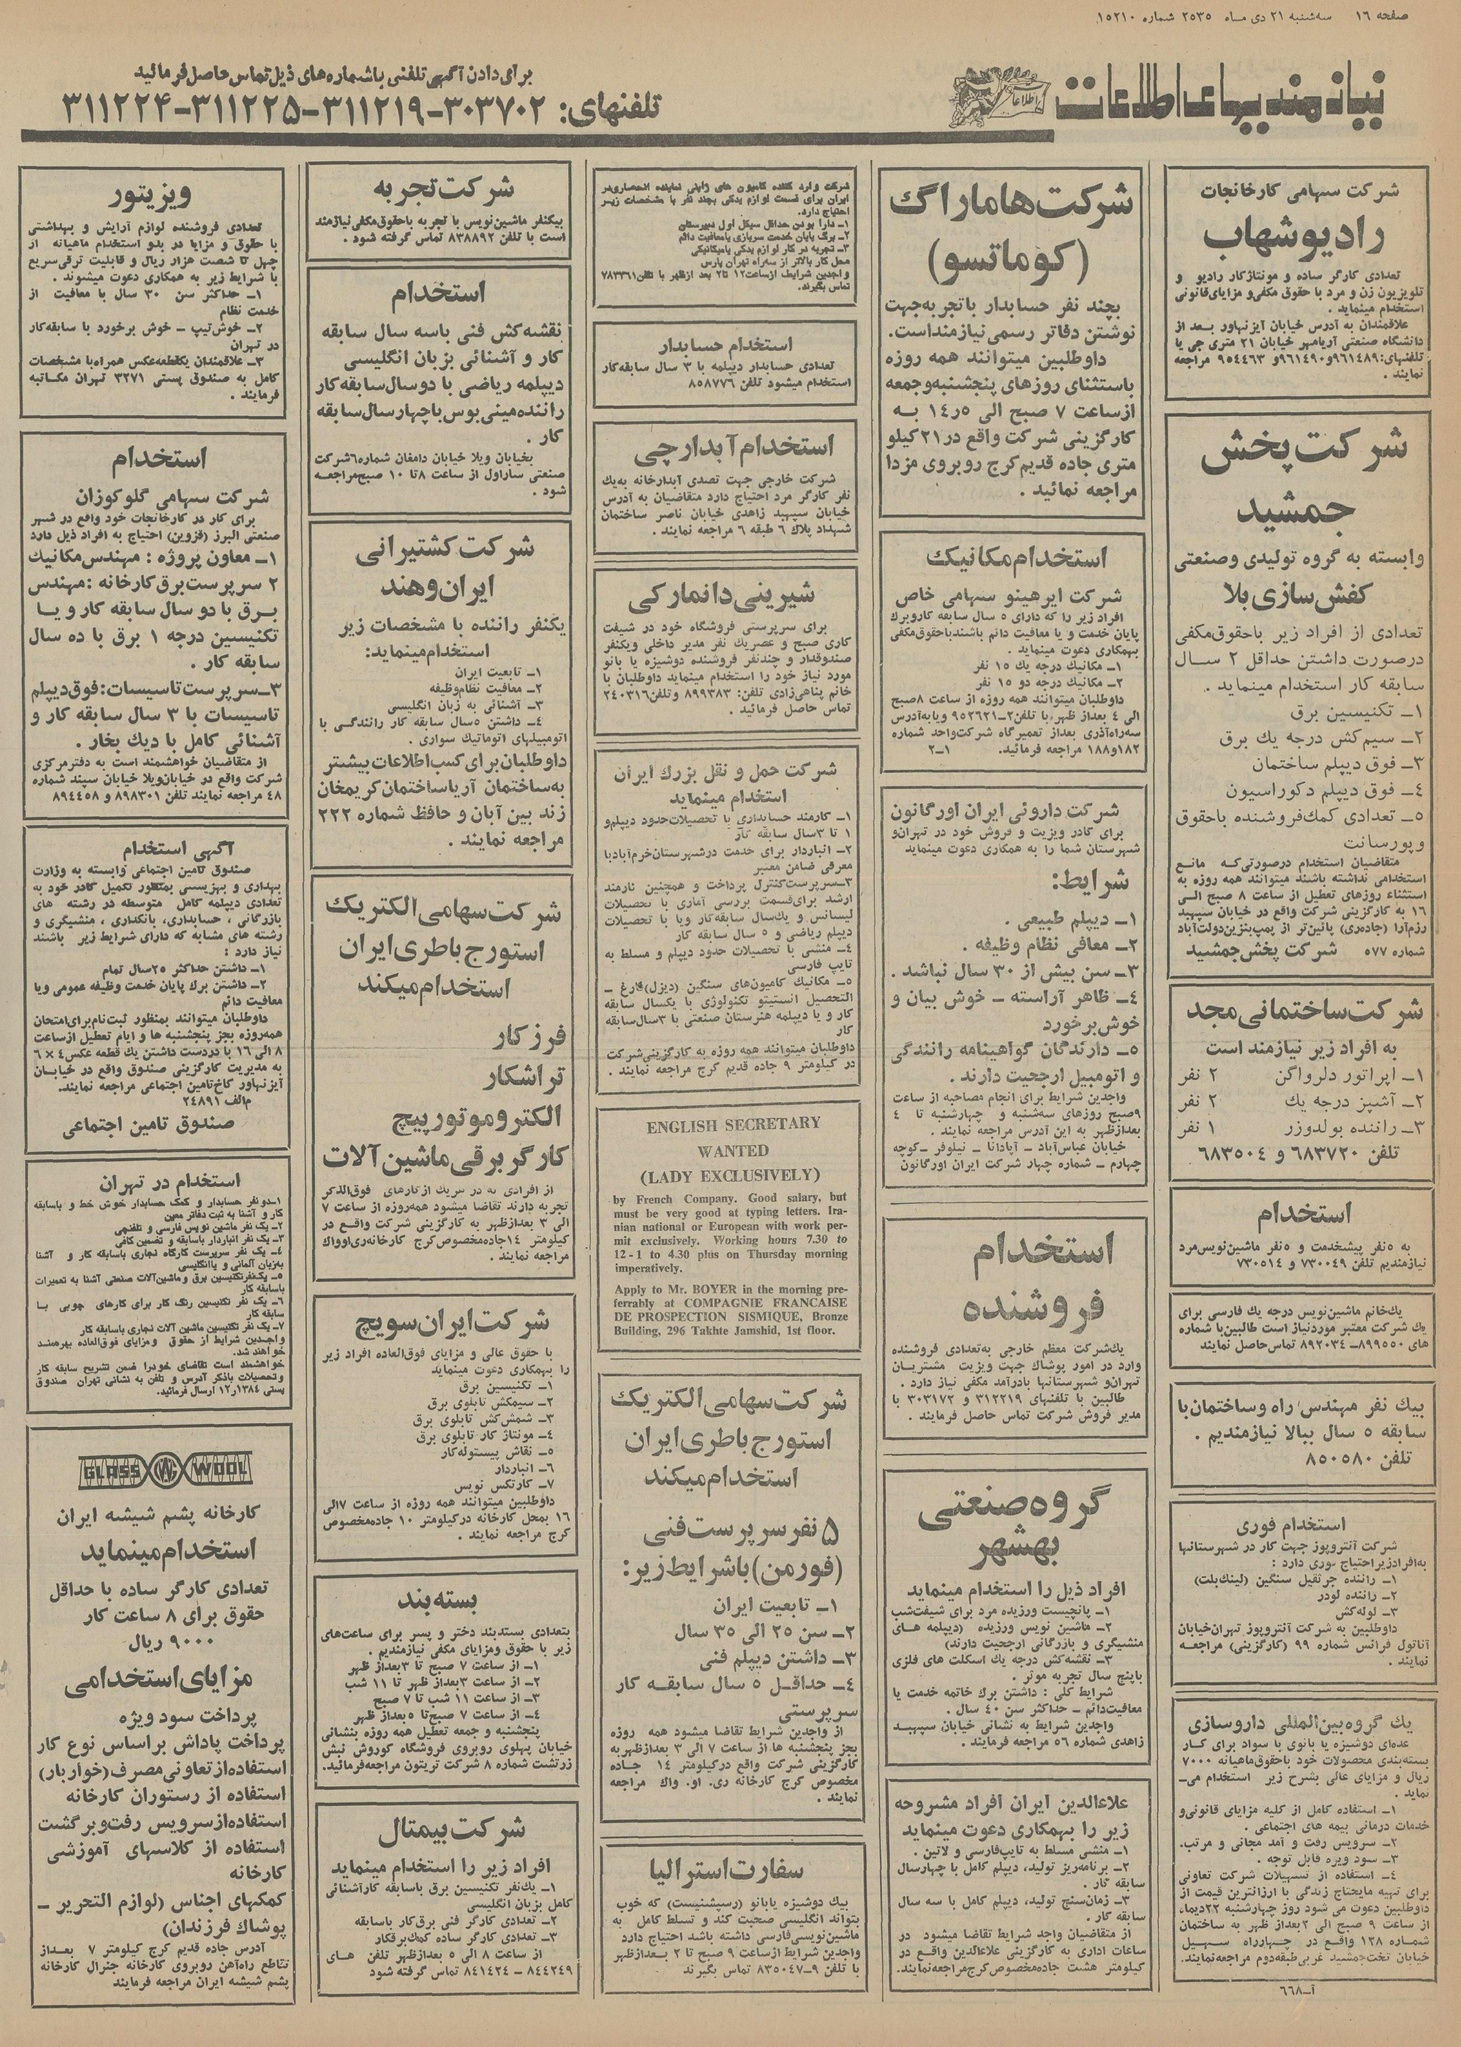 صفحه ۱۶ سه‌شنبه ۲۱ دی ماه ۲۵۳۵ شماره ۱۵۲۱۰
نیازمندیهای اطلاعات
برای دادن آگهی تلفنی با شماره‌های ذیل تماس حاصل فرمائید
تلفنهای: ۳۰۳۷۰۲-۳۱۱۲۱۹-۳۱۱۲۲۵-۳۱۱۲۲۴
شرکت سهامی کارخانجات
رادیو شهاب
تعدادی کارگر ساده و مونتاژکار رادیو و
تلویزیون زن و مرد با حقوق مکفی و مزایای قانونی
استخدام مینماید.
علاقمندان به آدرس خیابان آیزنهاور بعد از
دانشگاه صنعتی آریامهر خیابان ۲۱ متری جی یا
تلفنهای: ۹۶۱۴۸۹ و ۹۶۱۴۹۰ و ۹۵۴۴۶۳ مراجعه
نمایند.
شرکت پخش
جمشید
وابسته به گروه تولیدی و صنعتی
کفش سازی بلا
تعدادی از افراد زیر با حقوق مکفی
درصورت داشتن حداقل ۲ سال
سابقه کار استخدام مینماید.
۱ـ تکنیسین برق
۲ـ سیم‌کش درجه یك برق
۳ـ فوق دیپلم ساختمان
۴ـ فوق دیپلم دکوراسیون
۵ـ تعدادی کمك فروشنده با حقوق
و پورسانت
متقاضیان استخدام درصورتی‌که مانع
استخدامی نداشته باشند میتوانند همه روزه به
استثناء روزهای تعطیل از ساعت ۸ صبح الی
۱۶ به کارگزینی شرکت واقع در خیابان سپهبد
رزم‌آرا (جاده‌ری) پائین‌تر از پمپ‌بنزین دولت‌آباد
شماره ۵۷۷ شرکت پخش جمشید
شرکت ساختمانی مجد
به افراد زیر نیازمند است
۱ـ اپراتور دلرواگن ۲ نفر
۲ـ آشپز درجه یك ۲ نفر
۳ـ راننده بولدوزر ۱ نفر
تلفن ۶۸۳۷۲۰ و ۶۸۳۵۰۴
استخدام
به ۵نفر پیشخدمت و ۵نفر ماشین‌نویس‌مرد
نیازمندیم تلفن ۷۳۰۰۴۹ و ۷۳۰۵۱۴
یك خانم ماشین‌نویس درجه یك فارسی برای
یك شرکت معتبر موردنیاز است طالبین با شماره
های ۸۹۹۵۵۰-۸۹۲۰۳۴ تماس حاصل نمایند
بیك نفر مهندس راه و ساختمان با
سابقه ۵ سال ببالا نیازمندیم.
تلفن ۸۵۰۵۸۰
استخدام فوری
شرکت آنتروپوز جهت کار در شهرستانها
به‌افراد زیر احتیاج فوری دارد:
۱ـ راننده جرثقیل سنگین (لینك‌بلت)
۲ـ راننده لودر
۳ـ لوله‌کش
داوطلبین به شرکت آنتروپوز تهران خیابان
آناتول فرانس شماره ۹۹ (کارگزینی) مراجعه
نمایند.
یك گروه بین‌المللی داروسازی
عده‌ای دوشیزه یا بانوی با سواد برای کار
بسته‌بندی محصولات خود با حقوق ماهیانه ۷۰۰۰
ریال و مزایای عالی بشرح زیر استخدام می‌ـ
نماید.
۱ـ استفاده کامل از کلیه مزایای قانونی و
خدمات درمانی بیمه های اجتماعی.
۲ـ سرویس رفت و آمد مجانی و مرتب.
۳ـ سود ویژه قابل توجه.
۴ـ استفاده از تسهیلات شرکت تعاونی
برای تهیه مایحتاج زندگی با ارزانترین قیمت از
داوطلبین دعوت می شود روز چهارشنبه ۲۲دیماه
از ساعت ۹ صبح الی ۲بعداز ظهر به ساختمان
شماره ۱۲۸ واقع در چهارراه سهیل
خیابان تخت‌جمشید غربی طبقه دوم مراجعه نمایند.
آـ۶۶۸
شرکت هاماراگ
(کوماتسو)
بچند نفر حسابدار با تجربه جهت
نوشتن دفاتر رسمی نیازمند است.
داوطلبین میتوانند همه روزه
باستثنای روزهای پنجشنبه و جمعه
از ساعت ۷ صبح الی ۱۴٫۵ به
کارگزینی شرکت واقع در ۲۱ کیلو
متری جاده قدیم کرج روبروی مزدا
مراجعه نمائید.
استخدام مکانیك
شرکت ایرهینو سهامی خاص
افراد زیر را که دارای ۵ سال سابقه کار و برك
پایان خدمت و یا معافیت دائم باشند با حقوق مکفی
بهمکاری دعوت مینماید.
۱ـ مکانیك درجه یك ۱۵ نفر
۲ـ مکانیك درجه دو ۱۵ نفر
داوطلبان میتوانند همه روزه از ساعت ۸صبح
الی ۴ بعداز ظهر با تلفن ۲-۹۵۲۶۲۱ و یا به آدرس
سه‌راه آذری بعد از تعمیرگاه شرکت واحد شماره
۱۸۲ و ۱۸۸ مراجعه فرمائید. ۱ـ۲
شرکت داروئی ایران اورگانون
برای کادر ویزیت و فروش خود در تهران و
شهرستان شما را به همکاری دعوت مینماید
شرایط:
۱ـ دیپلم طبیعی.
۲ـ معافی نظام وظیفه.
۳ـ سن بیش از ۳۰ سال نباشد.
۴ـ ظاهر آراسته ـ خوش بیان و
خوش برخورد
۵ـ دارندگان گواهینامه رانندگی
و اتومبیل ارجحیت دارند.
واجدین شرایط برای انجام مصاحبه از ساعت
۹صبح روزهای سه‌شنبه و چهارشنبه تا ۴
بعدازظهر به این آدرس مراجعه نمایند.
خیابان عباس‌آباد ـ آپادانا ـ نیلوفر ـ کوچه
چهارم ـ شماره چهار شرکت ایران اورگانون
استخدام
فروشنده
یك شرکت معظم خارجی به‌تعدادی فروشنده
وارد در امور پوشاك جهت ویزیت مشتریان
تهران و شهرستانها با درآمد مکفی نیاز دارد.
طالبین با تلفنهای ۳۱۲۲۱۹ و ۳۰۳۱۷۲ با
مدیر فروش شرکت تماس حاصل فرمایند.
گروه صنعتی
بهشهر
افراد ذیل را استخدام مینماید
۱ـ پانچیست ورزیده مرد برای شیفت شب
۲ـ ماشین نویس ورزیده (دیپلمه های
منشیگری و بازرگانی ارجحیت دارند)
۳ـ نقشه‌کش درجه یك اسکلت های فلزی
با پنج سال تجربه موثر.
شرایط کلی: داشتن برك خاتمه خدمت یا
معافیت دائم ـ حداکثر سن ۴۰ سال.
واجدین شرایط به نشانی خیابان سپهبد
زاهدی شماره ۵۶ مراجعه فرمایند.
علاءالدین ایران افراد مشروحه
زیر را بهمکاری دعوت مینماید
۱ـ منشی مسلط به تایپ فارسی و لاتین.
۲ـ برنامه‌ریز تولید، دیپلم کامل با چهارسال
سابقه کار.
۳ـ زمان‌سنج تولید، دیپلم کامل با سه سال
سابقه کار.
از متقاضیان واجد شرایط تقاضا میشود در
ساعات اداری به کارگزینی علاءالدین واقع در
کیلومتر هشت جاده مخصوص کرج مراجعه نمایند.
شرکت وارد کننده کامیون های ژاپنی نماینده انحصاری در
ایران برای قسمت لوازم یدکی بچند نفر با مشخصات زیر
احتیاج دارد.
۱ـ دارا بودن حداقل سیکل اول دبیرستان
۲ـ برگ پایان خدمت سربازی یا معافیت دائم
۳ـ تجربه در کار لوازم یدکی یا مکانیکی
محل کار بالاتر از سه‌راه تهران پارس
واجدین شرایط از ساعت ۱۲ تا ۲ بعد ازظهر با تلفن ۷۸۳۳۶۱
تماس بگیرند.
استخدام حسابدار
تعدادی حسابدار دیپلمه با ۳ سال سابقه کار
استخدام میشود تلفن ۸۵۸۷۷۶
استخدام آبدارچی
شرکت خارجی جهت تصدی آبدارخانه به‌یك
نفر کارگر مرد احتیاج دارد متقاضیان به آدرس
خیابان سپهبد زاهدی خیابان ناصر ساختمان
شهداد پلاك ۶ طبقه ۶ مراجعه نمایند.
شیرینی دانمارکی
برای سرپرستی فروشگاه خود در شیفت
کاری صبح و عصر یك نفر مدیر داخلی و یکنفر
صندوقدار و چندنفر فروشنده دوشیزه یا بانو
مورد نیاز خود را استخدام مینماید داوطلبان با
خانم پناهی‌زادی تلفن: ۸۹۹۳۸۳ و تلفن ۲۴۰۳۱۶
تماس حاصل فرمائید.
شرکت حمل و نقل بزرك ایران
استخدام مینماید
۱ـ کارمند حسابداری با تحصیلات حدود دیپلم و
۱ تا ۳سال سابقه کار
۲ـ انباردار برای خدمت در شهرستان خرم‌آباد با
معرفی ضامن معتبر
۳ـ سرپرست کنترل پرداخت و همچنین کارمند
ارشد برای قسمت بررسی آماری با تحصیلات
لیسانس و یك‌سال سابقه کار و یا با تحصیلات
دیپلم ریاضی و ۵ سال سابقه کار
۴ـ منشی با تحصیلات حدود دیپلم و مسلط به
تایپ فارسی
۵ـ مکانیك کامیون‌های سنگین (دیزل) فارغ ـ
التحصیل انستیتو تکنولوژی با یکسال سابقه
کار و یا دیپلمه هنرستان صنعتی با ۳سال سابقه
کار
داوطلبان میتوانند همه روزه به کارگزینی شرکت
در کیلومتر ۹ جاده قدیم کرج مراجعه نمایند.
ENGLISH SECRETARY
WANTED
(LADY EXCLUSIVELY)
by French Company. Good salary, but
must be very good at typing letters. Ira-
nian national or European with work per-
mit exclusively. Working hours 7.30 to
12-1 to 4.30 plus on Thursday morning
imperatively.
Apply to Mr. BOYER in the morning pre-
ferrably at COMPAGNIE FRANCAISE
DE PROSPECTION SISMIQUE, Bronze
Building, 296 Takhte Jamshid, 1st floor.
شرکت سهامی الکتریك
استورج باطری ایران
استخدام میکند
۵ نفر سرپرست فنی
(فورمن) باشرایط زیر:
۱ـ تابعیت ایران
۲ـ سن ۲۵ الی ۳۵ سال
۳ـ داشتن دیپلم فنی
۴ـ حداقل ۵ سال سابقه کار
سرپرستی
از واجدین شرایط تقاضا میشود همه روزه
بجز پنجشنبه ها از ساعت ۷ الی ۳ بعدازظهر به
کارگزینی شرکت واقع در کیلومتر ۱۴ جاده
مخصوص کرج کارخانه ری. او. واك مراجعه
نمایند.
سفارت استرالیا
بیك دوشیزه یا بانو (رسپشنیست) که خوب
بتواند انگلیسی صحبت کند و تسلط کامل به
ماشین‌نویسی فارسی داشته باشد احتیاج دارد
واجدین شرایط از ساعت ۹ صبح تا ۲ بعدازظهر
با تلفن ۹-۸۳۵۰۴۷ تماس بگیرند
شرکت تجربه
بیکنفر ماشین‌نویس با تجربه با حقوق مکفی نیازمند
است با تلفن ۸۳۸۸۹۲ تماس گرفته شود.
استخدام
نقشه‌کش فنی با سه سال سابقه
کار و آشنائی بزبان انگلیسی
دیپلمه ریاضی با دو سال سابقه کار
راننده مینی‌بوس با چهار سال سابقه
کار.
بخیابان ویلا خیابان دامغان شماره ۶ شرکت
صنعتی ساراول از ساعت ۸ تا ۱۰ صبح مراجعه
شود.
شرکت کشتیرانی
ایران و هند
یکنفر راننده با مشخصات زیر
استخدام مینماید:
۱ـ تابعیت ایران
۲ـ معافیت نظام وظیفه
۳ـ آشنائی به زبان انگلیسی
۴ـ داشتن ۵سال سابقه کار رانندگی با
اتومبیلهای اتوماتیك سواری.
داوطلبان برای کسب اطلاعات بیشتر
به ساختمان آریا ساختمان کریمخان
زند بین آبان و حافظ شماره ۲۲۲
مراجعه نمایند.
شرکت سهامی الکتریك
استورج باطری ایران
استخدام میکند
فرزکار
تراشکار
الکتروموتور پیچ
کارگر برقی ماشین‌آلات
از افرادی که در هریك از کارهای فوق‌الذکر
تجربه دارند تقاضا میشود همه‌روزه از ساعت ۷
الی ۳ بعدازظهر به کارگزینی شرکت واقع در
کیلومتر ۱۴ جاده مخصوص کرج کارخانه ری‌او‌واك
مراجعه نمایند.
شرکت ایران سویچ
با حقوق عالی و مزایای فوق‌العاده افراد زیر
را بهمکاری دعوت مینماید
۱ـ تکنیسین برق
۲ـ سیمکش تابلوی برق
۳ـ شمش‌کش تابلوی برق
۴ـ مونتاژ کار تابلوی برق
۵ـ نقاش پیستوله‌کار
۶ـ انباردار
۷ـ کارتکس نویس
داوطلبین میتوانند همه روزه از ساعت ۷الی
۱۶ بمحل کارخانه در کیلومتر ۱۰ جاده مخصوص
کرج مراجعه نمایند.
بسته‌بند
بتعدادی بسته‌بند دختر و پسر برای ساعت‌های
زیر با حقوق و مزایای مکفی نیازمندیم.
۱ـ از ساعت ۷ صبح تا ۳بعداز ظهر
۲ـ از ساعت ۳بعداز ظهر تا ۱۱ شب
۳ـ از ساعت ۱۱ شب تا ۷ صبح
۴ـ از ساعت ۷ صبح تا ۵ بعداز ظهر
پنجشنبه و جمعه تعطیل همه روزه بنشانی
خیابان پهلوی روبروی فروشگاه کوروش نبش
زرتشت شماره ۸ شرکت تریتون مراجعه فرمائید.
شرکت بیمتال
افراد زیر را استخدام مینماید
۱ـ یك‌نفر تکنیسین برق با سابقه کار آشنائی
کامل بزبان انگلیسی
۲ـ تعدادی کارگر فنی برق‌کار با سابقه
۳ـ تعدادی کارگر ساده کمك برقکار
از ساعت ۸ الی ۵ بعدازظهر تلفن های
۸۴۴۲۴۹ - ۸۴۱۴۲۴ تماس گرفته شود
ویزیتور
تعدادی فروشنده لوازم آرایش و بهداشتی
با حقوق و مزایا در بدو استخدام ماهیانه از
چهل تا شصت هزار ریال و قابلیت ترقی سریع
با شرایط زیر به همکاری دعوت میشوند.
۱ـ حداکثر سن ۳۰ سال با معافیت از
خدمت نظام
۲ـ خوش‌تیپ ـ خوش برخورد با سابقه کار
در تهران
۳ـ علاقمندان یکقطعه عکس همراه با مشخصات
کامل به صندوق پستی ۳۲۷۱ تهران مکاتبه
فرمایند.
استخدام
شرکت سهامی گلوکوزان
برای کار در کارخانجات خود واقع در شهر
صنعتی البرز (قزوین) احتیاج به افراد ذیل دارد
۱ـ معاون پروژه: مهندس مکانیك
۲ سرپرست برق کارخانه: مهندس
برق با دو سال سابقه کار و یا
تکنیسین درجه ۱ برق با ده سال
سابقه کار.
۳ـ سرپرست تاسیسات: فوق دیپلم
تاسیسات با ۳ سال سابقه کار و
آشنائی کامل با دیك بخار.
از متقاضیان خواهشمند است به دفتر مرکزی
شرکت واقع در خیابان ویلا خیابان سپند شماره
۴۸ مراجعه نمایند تلفن ۸۹۸۳۰۱ و ۸۹۴۴۵۸
آگهی استخدام
صندوق تامین اجتماعی وابسته به وزارت
بهداری و بهزیستی بمنظور تکمیل کادر خود به
تعدادی دیپلمه کامل متوسطه در رشته های
بازرگانی، حسابداری، بانکداری، منشیگری و
رشته های مشابه که دارای شرایط زیر باشند
نیاز دارد:
۱ـ داشتن حداکثر ۲۵سال تمام
۲ـ داشتن برك پایان خدمت وظیفه عمومی و یا
معافیت دائم
داوطلبان میتوانند بمنظور ثبت‌نام برای امتحان
همه‌روزه بجز پنجشنبه ها و ایام تعطیل از ساعت
۸ الی ۱۶ با دردست داشتن یك قطعه عکس ۴ × ۶
به مدیریت کارگزینی صندوق واقع در خیابان
آیزنهاور کاخ تامین اجتماعی مراجعه نمایند.
م‌الف ۲۴۸۹۱
صندوق تامین اجتماعی
استخدام در تهران
۱ـ دو نفر حسابدار و کمك حسابدار خوش خط و باسابقه
کار و آشنا به ثبت دفاتر معین
۲ـ یك نفر ماشین نویس فارسی و تلفنچی
۳ـ یك نفر انباردار باسابقه و تضمین کافی
۴ـ یك نفر سرپرست کارگاه نجاری باسابقه کار و آشنا
به‌زبان آلمانی و یا انگلیسی
۵ـ یکنفر تکنیسین برق و ماشین‌آلات صنعتی آشنا به تعمیرات
باسابقه کار
۶ـ یك نفر تکنیسین رنگ کار برای کارهای چوبی با
سابقه کار
۷ـ یك نفر تکنیسین ماشین آلات نجاری باسابقه کار
واجدین شرایط از حقوق و مزایای فوق‌العاده بهره‌مند
خواهند شد.
خواهشمند است تقاضای خود را ضمن تشریح سابقه کار
و تحصیلات با ذکر آدرس و تلفن به نشانی تهران صندوق
پستی ۱۲٫۱۳۸۴ ارسال فرمائید.
GLASS WOOL
کارخانه پشم شیشه ایران
استخدام مینماید
تعدادی کارگر ساده با حداقل
حقوق برای ۸ ساعت کار
۹۰۰۰ ریال
مزایای استخدامی
پرداخت سود ویژه
پرداخت پاداش براساس نوع کار
استفاده از تعاونی مصرف (خواربار)
استفاده از رستوران کارخانه
استفاده از سرویس رفت و برگشت
استفاده از کلاسهای آموزشی
کارخانه
کمکهای اجناس (لوازم التحریر ـ
پوشاك فرزندان)
آدرس جاده قدیم کرج کیلومتر ۷ بعداز
تقاطع راه‌آهن روبروی کارخانه جنرال کارخانه
پشم شیشه ایران مراجعه فرمایند